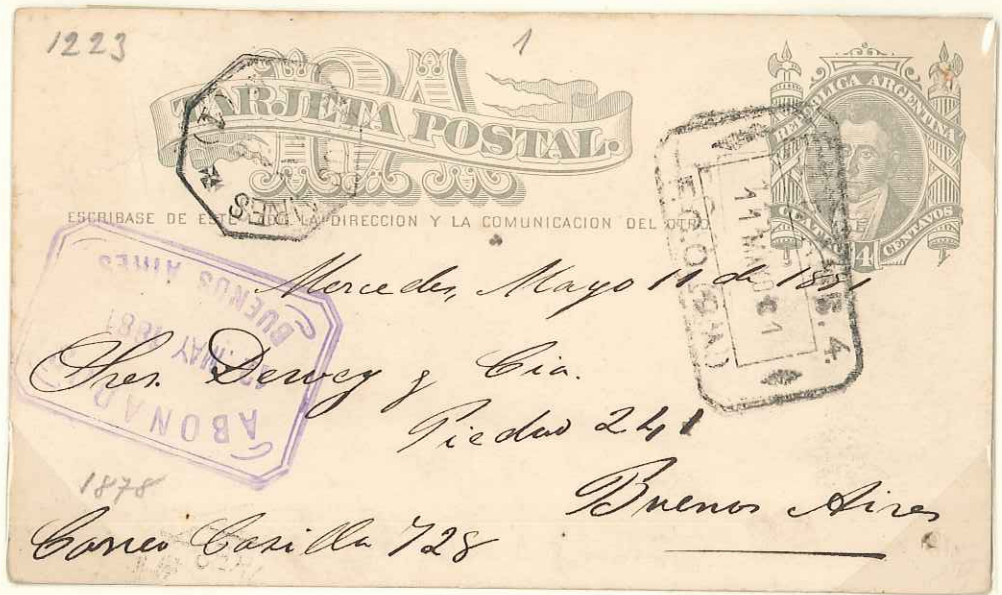 1223
1
TARJETA POSTAL.
REPUBLICA ARGENTINA
CENTAVOS 4 CENTAVOS
ESCRIBASE DE ESTE LADO LA DIRECCION Y LA COMUNICACION DEL OTRO
AIRES
4.
11 MAYO 81
ABONADO
12 MAY 1881
BUENOS AIRES
Mercedes, Mayo 11 de 1881
Sres. Dewey y Cia.
Piedad 241
Buenos Aires
1878
Correo Casilla 728